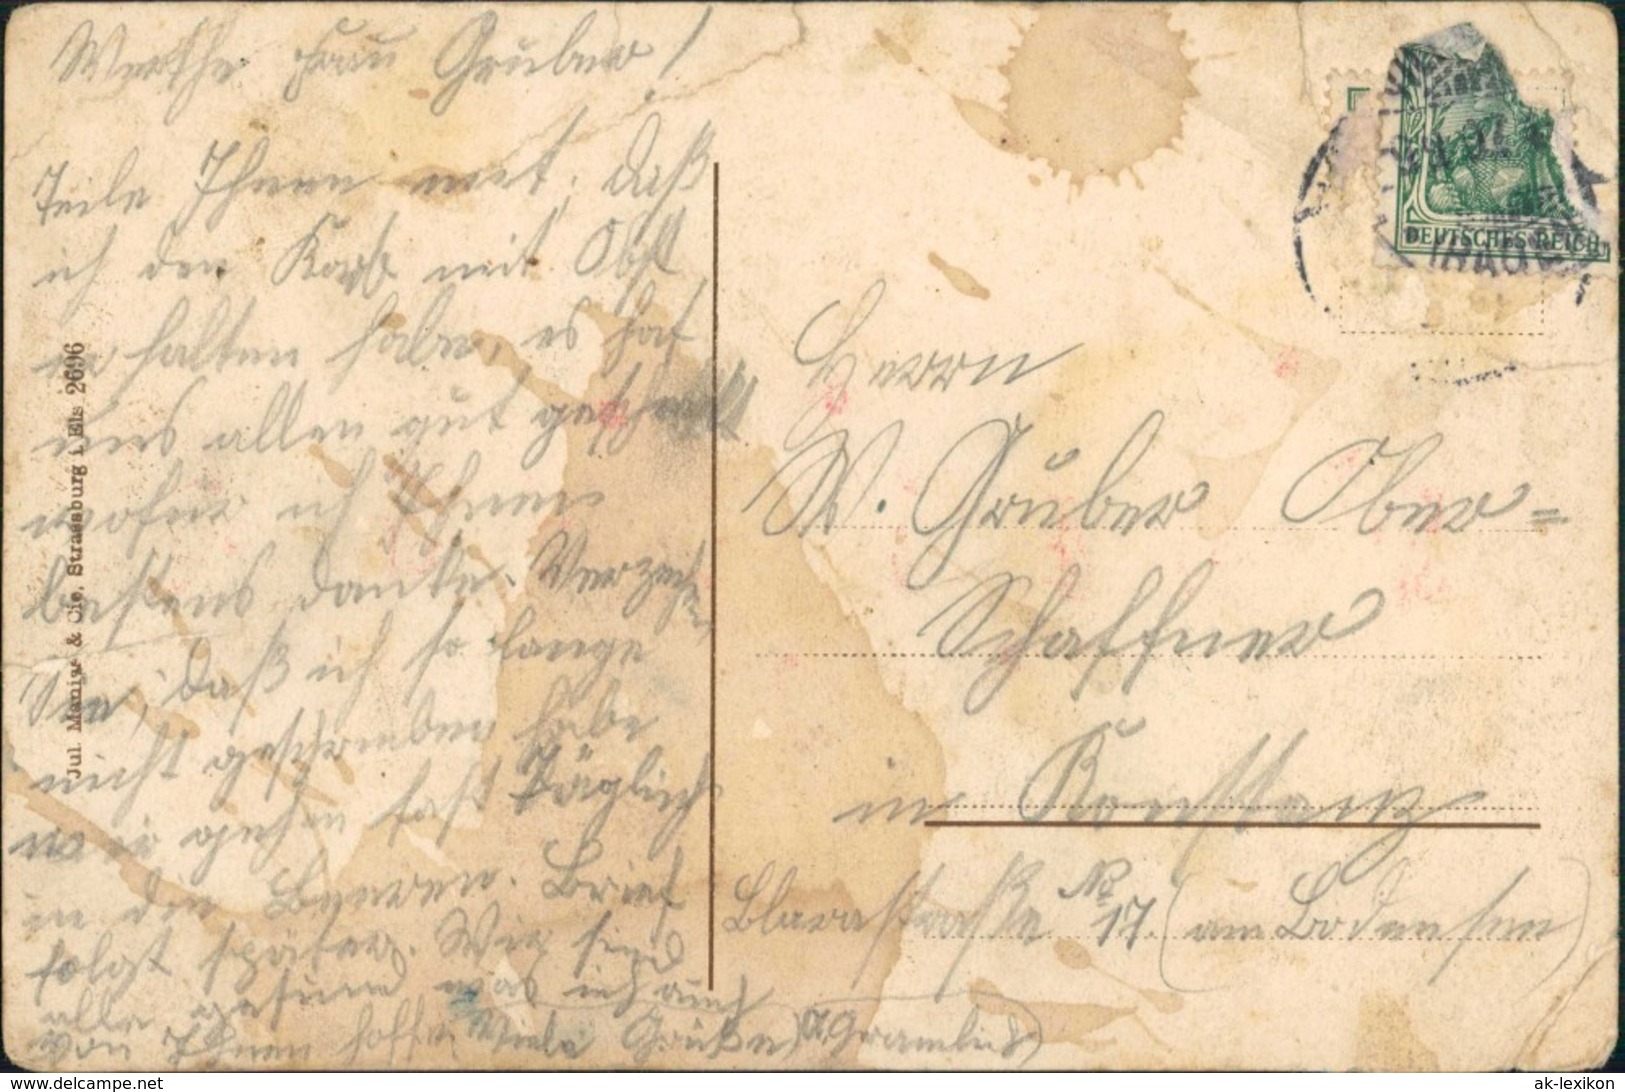 Werthe Frau Gruber!
Teile Ihnen mit, daß
ich den Korb mit Obst
erhalten habe, es hat
uns allen gut geschmeckt
wofür ich Ihnen
bestens danke. Verzeihen
Sie, daß ich so lange
nicht geschrieben habe
wir gehen fast täglich
in die Beeren. Brief
folgt später. Wir sind
alle gesund was ich auch
von Ihnen hoffe. Viele Grüße
Jul. Manias & Cie. Strassburg i. Els 2696
DEUTSCHES REICH
Herrn
W. Gruber Ober=
Schaffner
in Konstanz
Clarastraße No 17. (am Bodensee)
delcampe.net
ak-lexikon